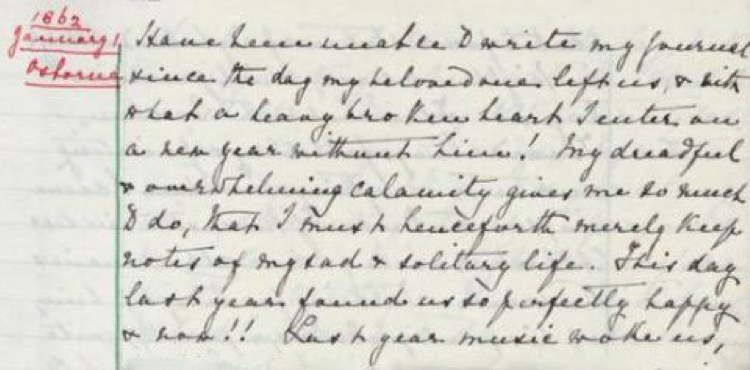 1862
January 1
Osborne
Have been unable to write my Journal
since the day my beloved one left us, & with
what a heavy broken heart I enter on
a new year without him! My dreadful
& overwhelming calamity gives me so much
to do, that I must henceforth merely keep
notes of my sad & solitary life. This day
last year found us so perfectly happy
& now!! Last year music woke us,